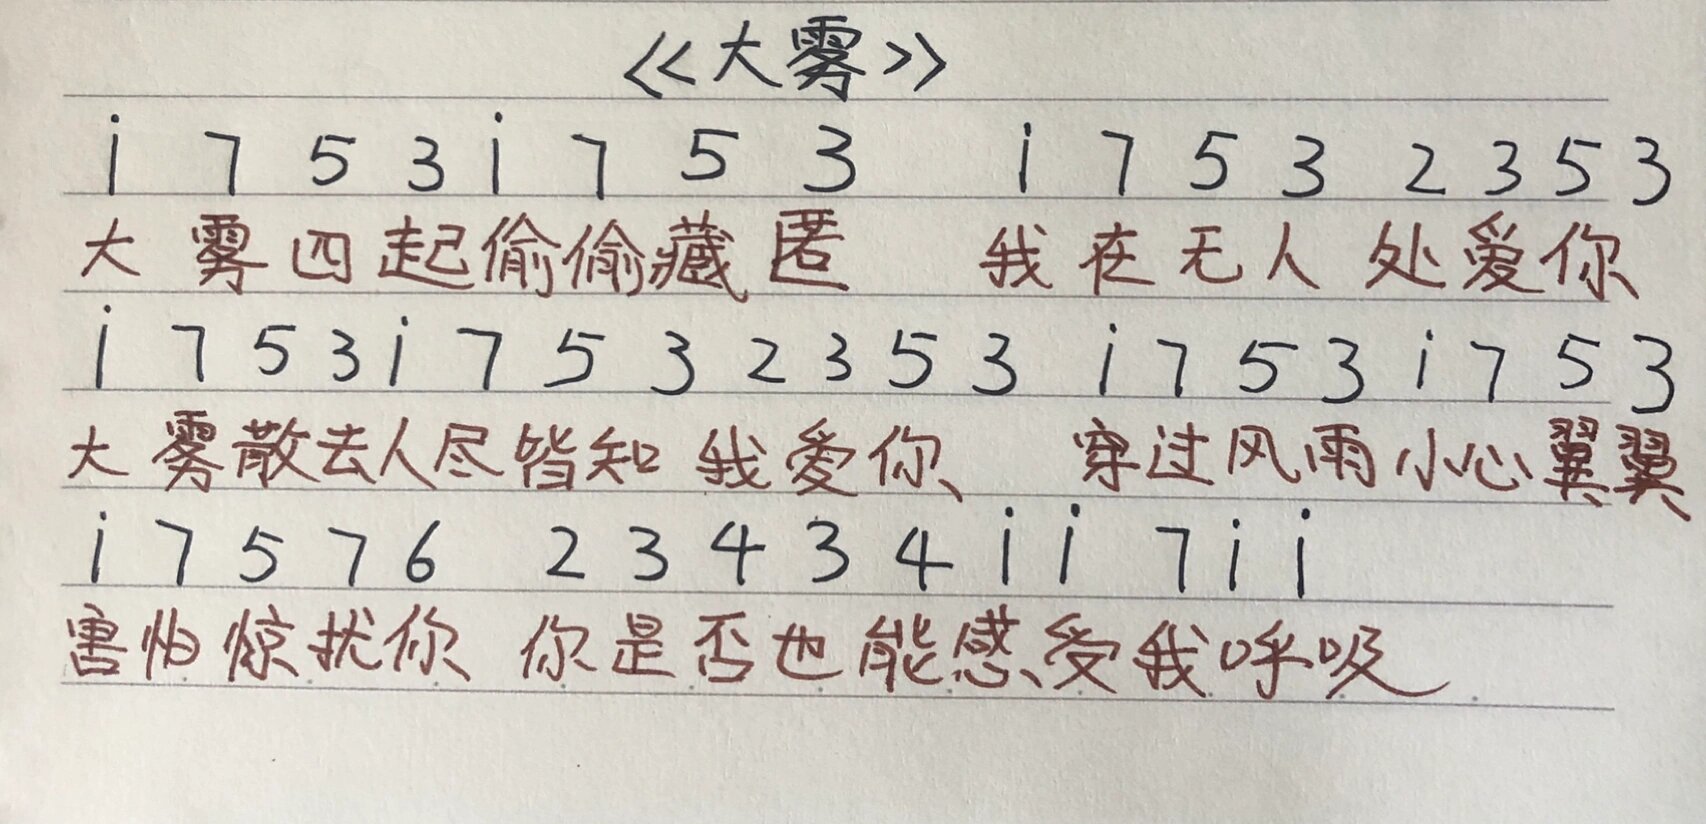 《大雾》
i 7 5 3 i 7 5 3 i 7 5 3 2 3 5 3
大雾四起偷偷藏匿 我在无人处爱你
i 7 5 3 i 7 5 3 2 3 5 3 i 7 5 3 i 7 5 3
大雾散去人尽皆知我爱你、 穿过风雨小心翼翼
i 7 5 7 6 2 3 4 3 4 i i 7 i i
害怕惊扰你 你是否也能感受我呼吸